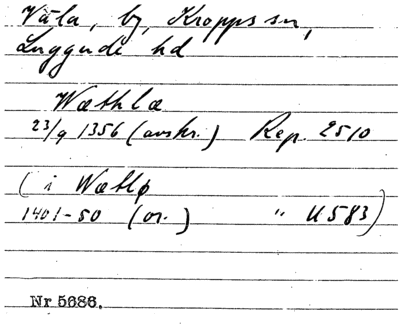 Väla, by, Kropps sn,
Luggude hd
Wæthlæ
23/9 1356 (avskr.) Rep. 2510
(i Wætlø
1401-50 (or.) " U 583)
Nr 5686.